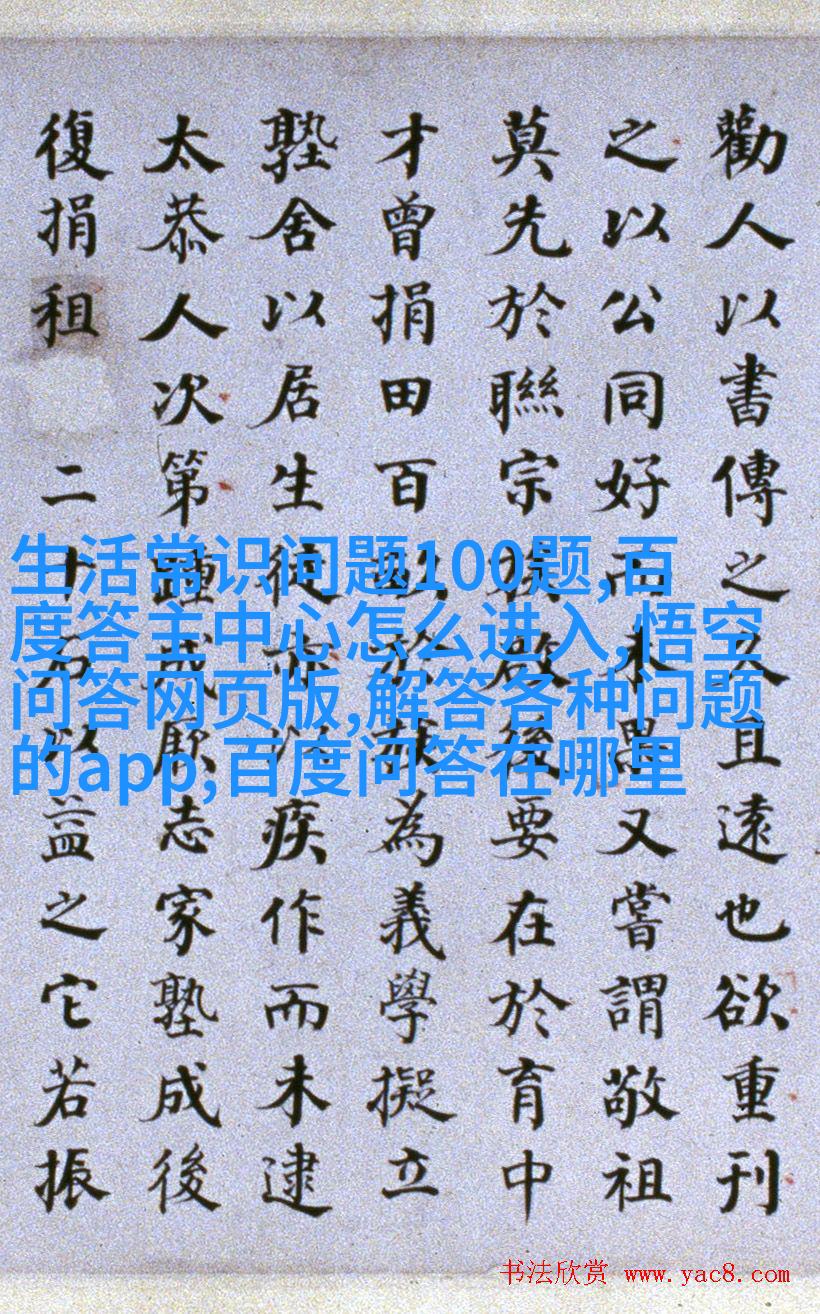 勸人以書傳之久且遠也欲重刊
之以公同好而未又嘗謂敬祖
莫先於聯宗族啟後要在於育中
才曾捐田百於族為義學擬立
塾舍以居生徒亦以疾作而未逮
太恭人次第踵成厥志家塾成後
復捐租二十石以益之它若振
生活常识问题100题,百
度答主中心怎么进入,悟空
问答网页版,解答各种问题
的app,百度问答在哪里
书法欣赏 www.yac8.com